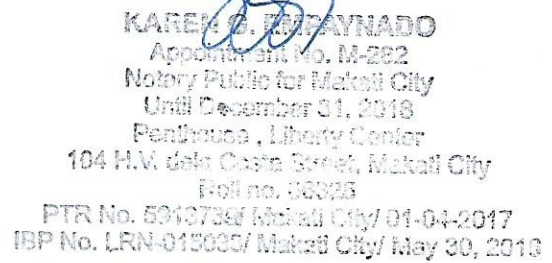 KAREN G. EMPAYNADO
Appointment No. M-282
Notary Public for Makati City
Until December 31, 2018
Penthouse , Liberty Center
104 H.V. dela Costa Street, Makati City
Roll no.
PTR No. 5913739/ Makati City/ 01-04-2017
IBP No. LRN-015035/ Makati City/ May 30, 2010